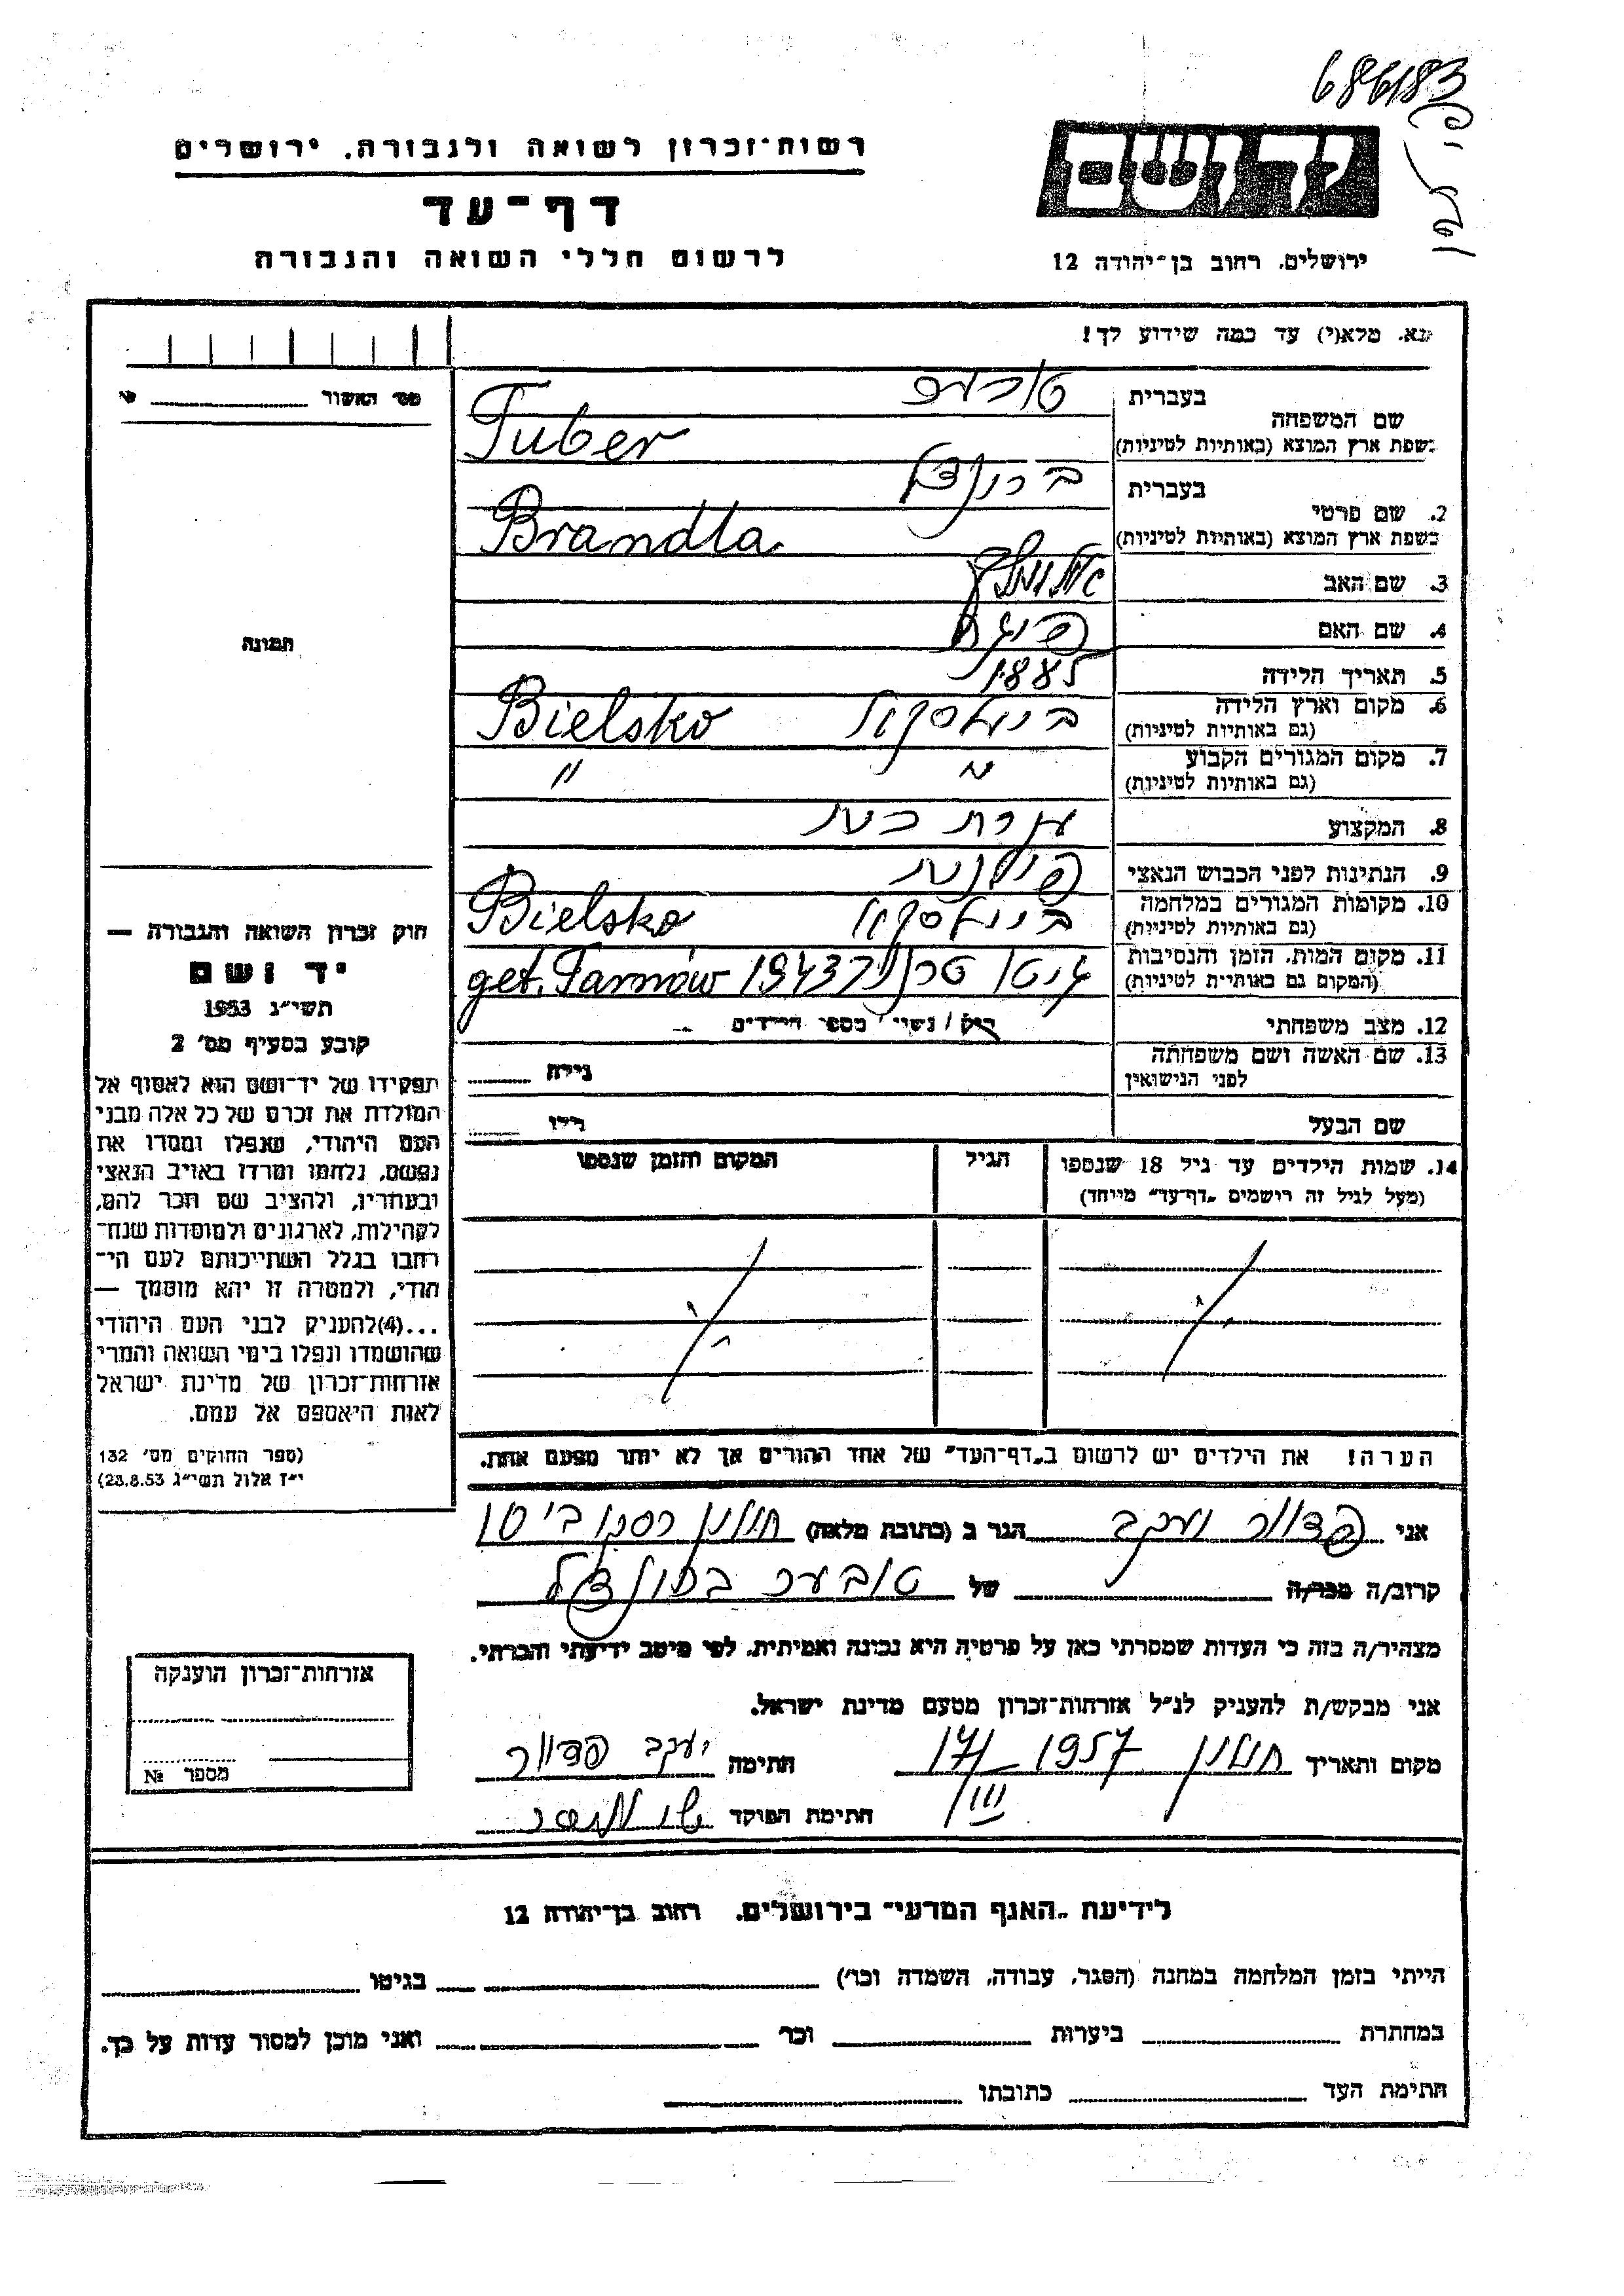 686183
רשות־זכרון לשואה ולגבורה, ירושלים
יד ושם
דף־עד
לרשום חללי השואה והגבורה
ירושלים, רחוב בן־יהודה 12
נא, מלא(י) עד כמה שידוע לך!
מס׳ האשור №
שם המשפחה
בעברית
בשפת ארץ המוצא (באותיות לטיניות) Tuber
2. שם פרטי
בעברית ברנדל
בשפת ארץ המוצא (באותיות לטיניות) Brandla
3. שם האב אלימלך
4. שם האם
5. תאריך הלידה 1885
6. מקום וארץ הלידה
(גם באותיות לטיניות) Bielsko
7. מקום המגורים הקבוע
(גם באותיות לטיניות) " "
8. המקצוע עקרת בית
9. הנתינות לפני הכבוש הנאצי פולנית
10. מקומות המגורים במלחמה
(גם באותיות לטיניות) Bielsko
11. מקום המות, הזמן והנסיבות
(המקום גם באותיות לטיניות) גיטו טרנוב 1943 get. Tarnów
12. מצב משפחתי רוק / נשוי / מספר הילדים
13. שם האשה ושם משפחתה
לפני הנישואין
גילה
שם הבעל
גילו
14. שמות הילדים עד גיל 18 שנספו
(מעל לגיל זה רושמים „דף־עד״ מיוחד)
הגיל
המקום והזמן שנספו
הערה! את הילדים יש לרשום ב„דף־העד״ של אחד ההורים אך לא יותר מפעם אחת.
תמונה
חוק זכרון השואה והגבורה —
יד ושם
תשי״ג 1953
קובע בסעיף מס׳ 2
תפקידו של יד־ושם הוא לאסוף אל
המולדת את זכרם של כל אלה מבני
העם היהודי, שנפלו ומסרו את
נפשם, נלחמו ומרדו באויב הנאצי
ובעוזריו, ולהציב שם וזכר להם,
לקהילות, לארגונים ולמוסדות שנח־
רחבו בגלל השתייכותם לעם הי־
הודי, ולמטרה זו יהא מוסמך —
...(4)להעניק לבני העם היהודי
שהושמדו ונפלו בימי השואה והמרי
אזרחות־זכרון של מדינת ישראל
לאות היאספם אל עמם.
(ספר החוקים מס׳ 132
י״ז אלול תשי״ג 23.8.53)
אני יעקב הגר ב (כתובת מלאה) חולון
קרוב/ה מכר/ה של
מצהיר/ה בזה כי העדות שמסרתי כאן על פרטיה היא נכונה ואמיתית, לפי מיטב ידיעתי והכרתי.
אני מבקש/ת להעניק לנ״ל אזרחות־זכרון מטעם מדינת ישראל.
מקום ותאריך חולון 17/III 1957 חתימה יעקב
חתימת הפוקד
אזרחות־זכרון הוענקה
מספר №
לידיעת „האגף המדעי״ בירושלים, רחוב בן־יהודה 12
הייתי בזמן המלחמה במחנה (הסגר, עבודה, השמדה וכו׳) בגיטו
במחתרת ביערות וכו׳ ואני מוכן למסור עדות על כך.
חתימת העד כתובתו